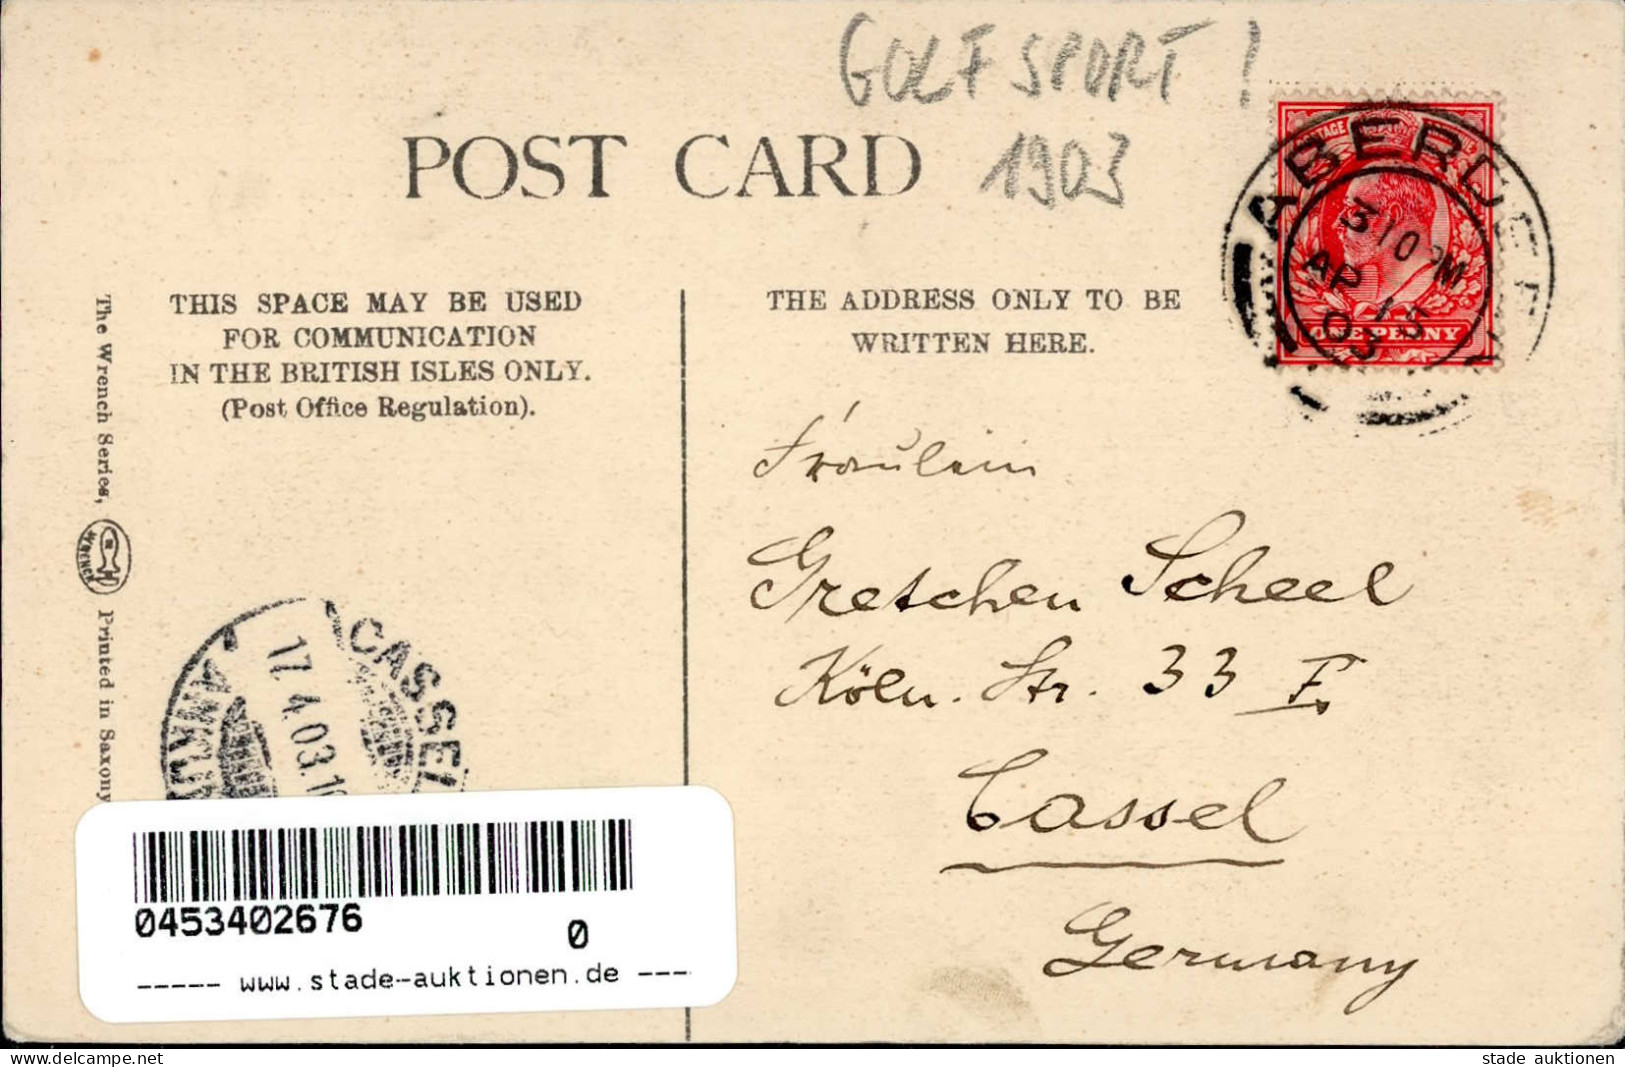 GOLFSPORT!
1903
POST CARD
THIS SPACE MAY BE USED
FOR COMMUNICATION
IN THE BRITISH ISLES ONLY.
(Post Office Regulation).
THE ADDRESS ONLY TO BE
WRITTEN HERE.
POSTAGE
ONE PENNY
ABERDEEN
3 10 PM
AP 15
03
The Wrench Series,
WRENCH
Printed in Saxony
CASSEL
17.4.03.
Fräulein
Gretchen Scheel
Köln. Str. 33 I.
Cassel
Germany
0453402676
0
----- www.stade-auktionen.de ---
stade auktionen